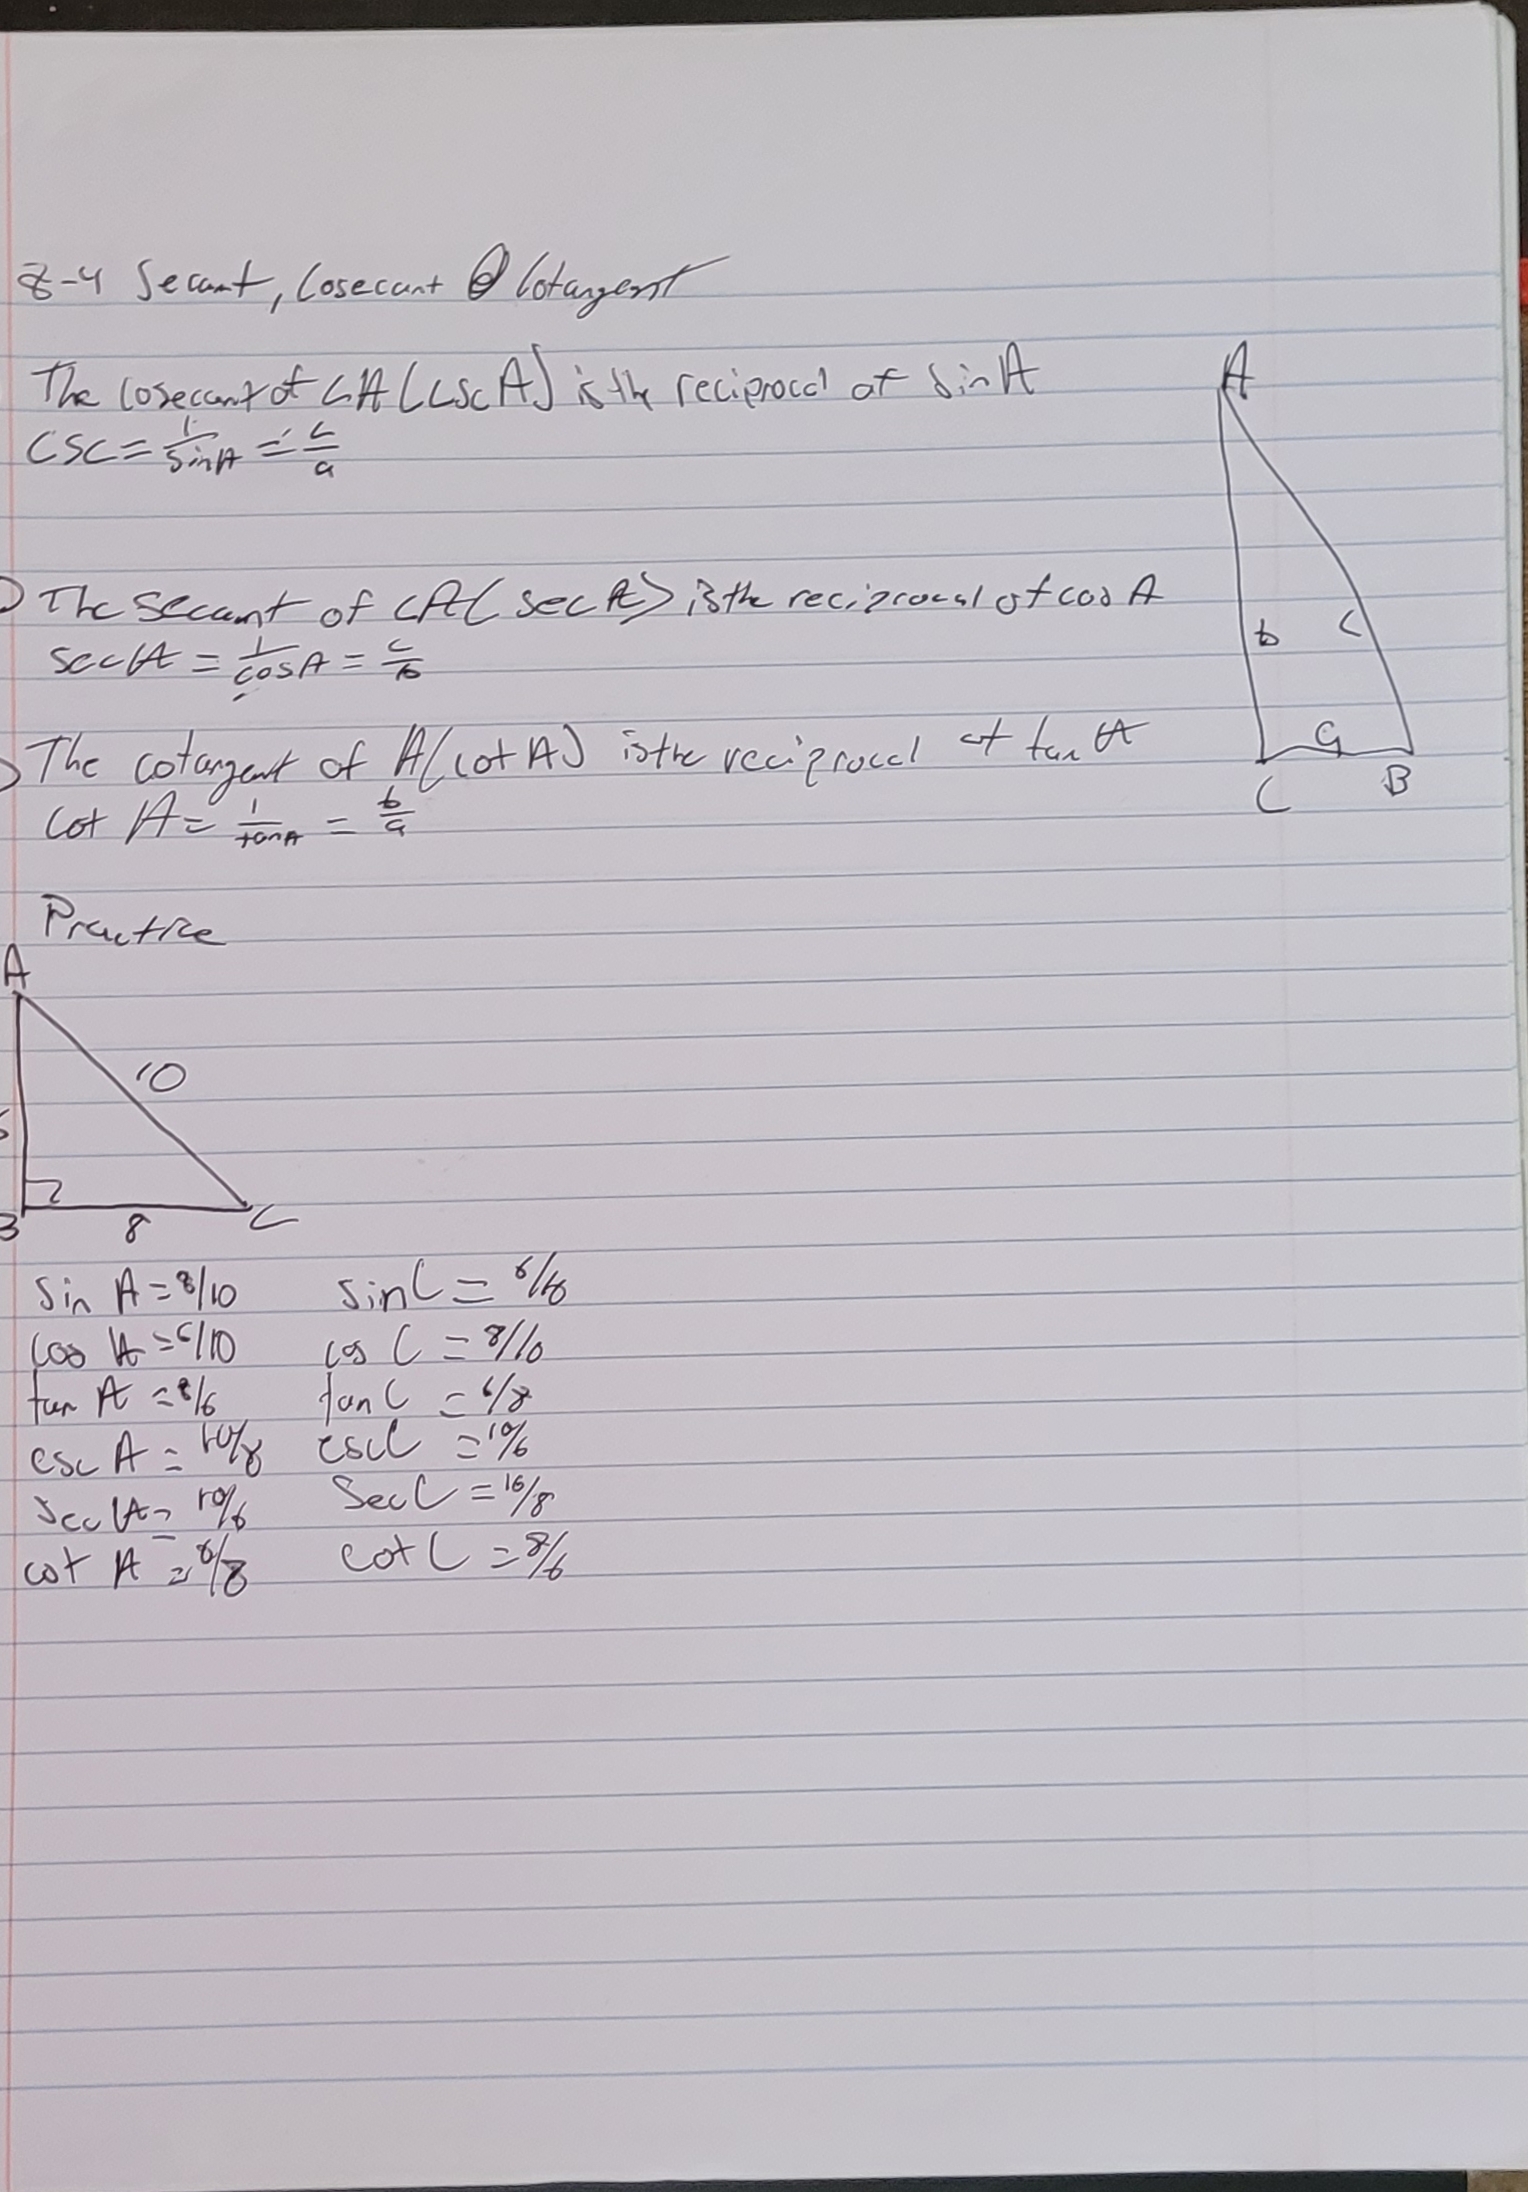 8-4 Secant, Cosecant & Cotangent
The cosecant of ∠A (csc A) is the reciprocal of sin A
CSC = 1/sinA = c/a
The secant of ∠A (sec A) is the reciprocal of cos A
sec A = 1/cosA = c/b
The cotangent of A (cot A) is the reciprocal of tan A
cot A = 1/tanA = b/a
A
b
c
a
C
B
Practice
A
10
B
8
C
sin A = 8/10 sin C = 6/10
cos A = 6/10 cos C = 8/10
tan A = 8/6 tan C = 6/8
csc A = 10/8 csc C = 10/6
sec A = 10/6 sec C = 10/8
cot A = 6/8 cot C = 8/6